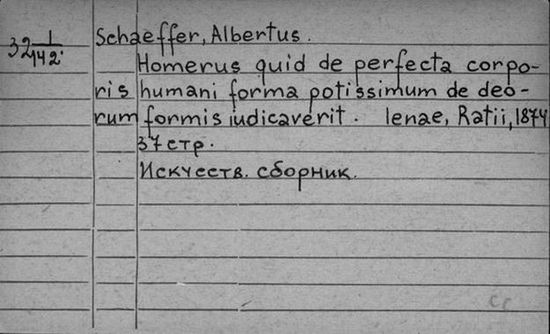 32 1/142.
Schaeffer, Albertus.
Homerus quid de perfecta corpo-
ris humani forma potissimum de deo-
rum formis iudicaverit. Ienae, Ratii, 1874
37 стр.
Искусств. сборник.